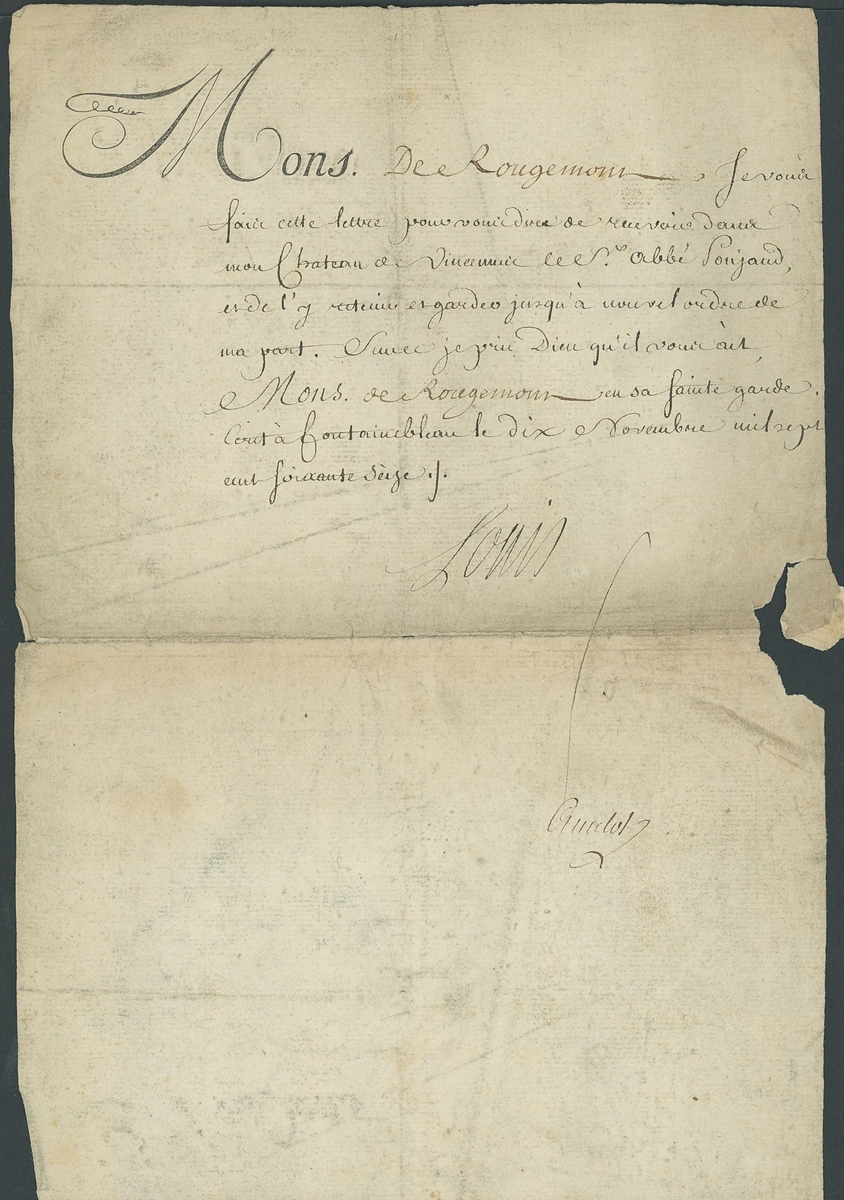 Mons. De Rougemont, Je vous
fais cette lettre pour vous dire de recevoir dans
mon Chateau de Vincennes le S.r abbé Ponjaud,
et de l'y retenir et garder jusqu'à nouvel ordre de
ma part. Sur ce je prie Dieu qu'il vous ait,
Mons. de Rougemont en sa sainte garde.
Ecrit à fontainebleau le dix Novembre mil sept
cent soixante Seize ./.
Louis
Amelot